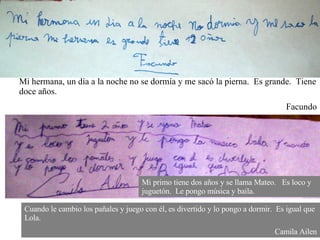 Mi hermana un dia a la noche no dormia y me saco la
pierna me hermana es grande tiene 12 añoz
Facundo
Mi hermana, un día a la noche no se dormía y me sacó la pierna. Es grande. Tiene
doce años.
Facundo
Mi primo tiene 2 año y se yama Mateo
y es loco y jugeton y le pongo la musica baila y cuando
le cambio los pañales y juego con el es divertido
y lo pongo a dormir y es igual que
Camila Ailen
Mi primo tiene dos años y se llama Mateo. Es loco y
juguetón. Le pongo música y baila.
Cuando le cambio los pañales y juego con él, es divertido y lo pongo a dormir. Es igual que
Lola.
Camila Ailen